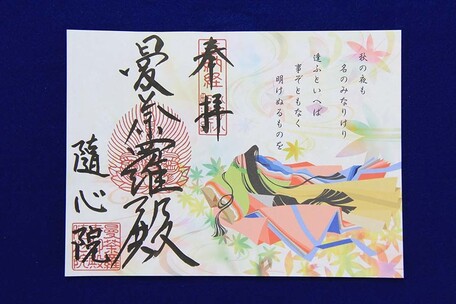 秋の夜も
名のみなりけり
逢ふといへば
事ぞともなく
明けぬるものを
奉拝
曼荼羅殿
隨心院